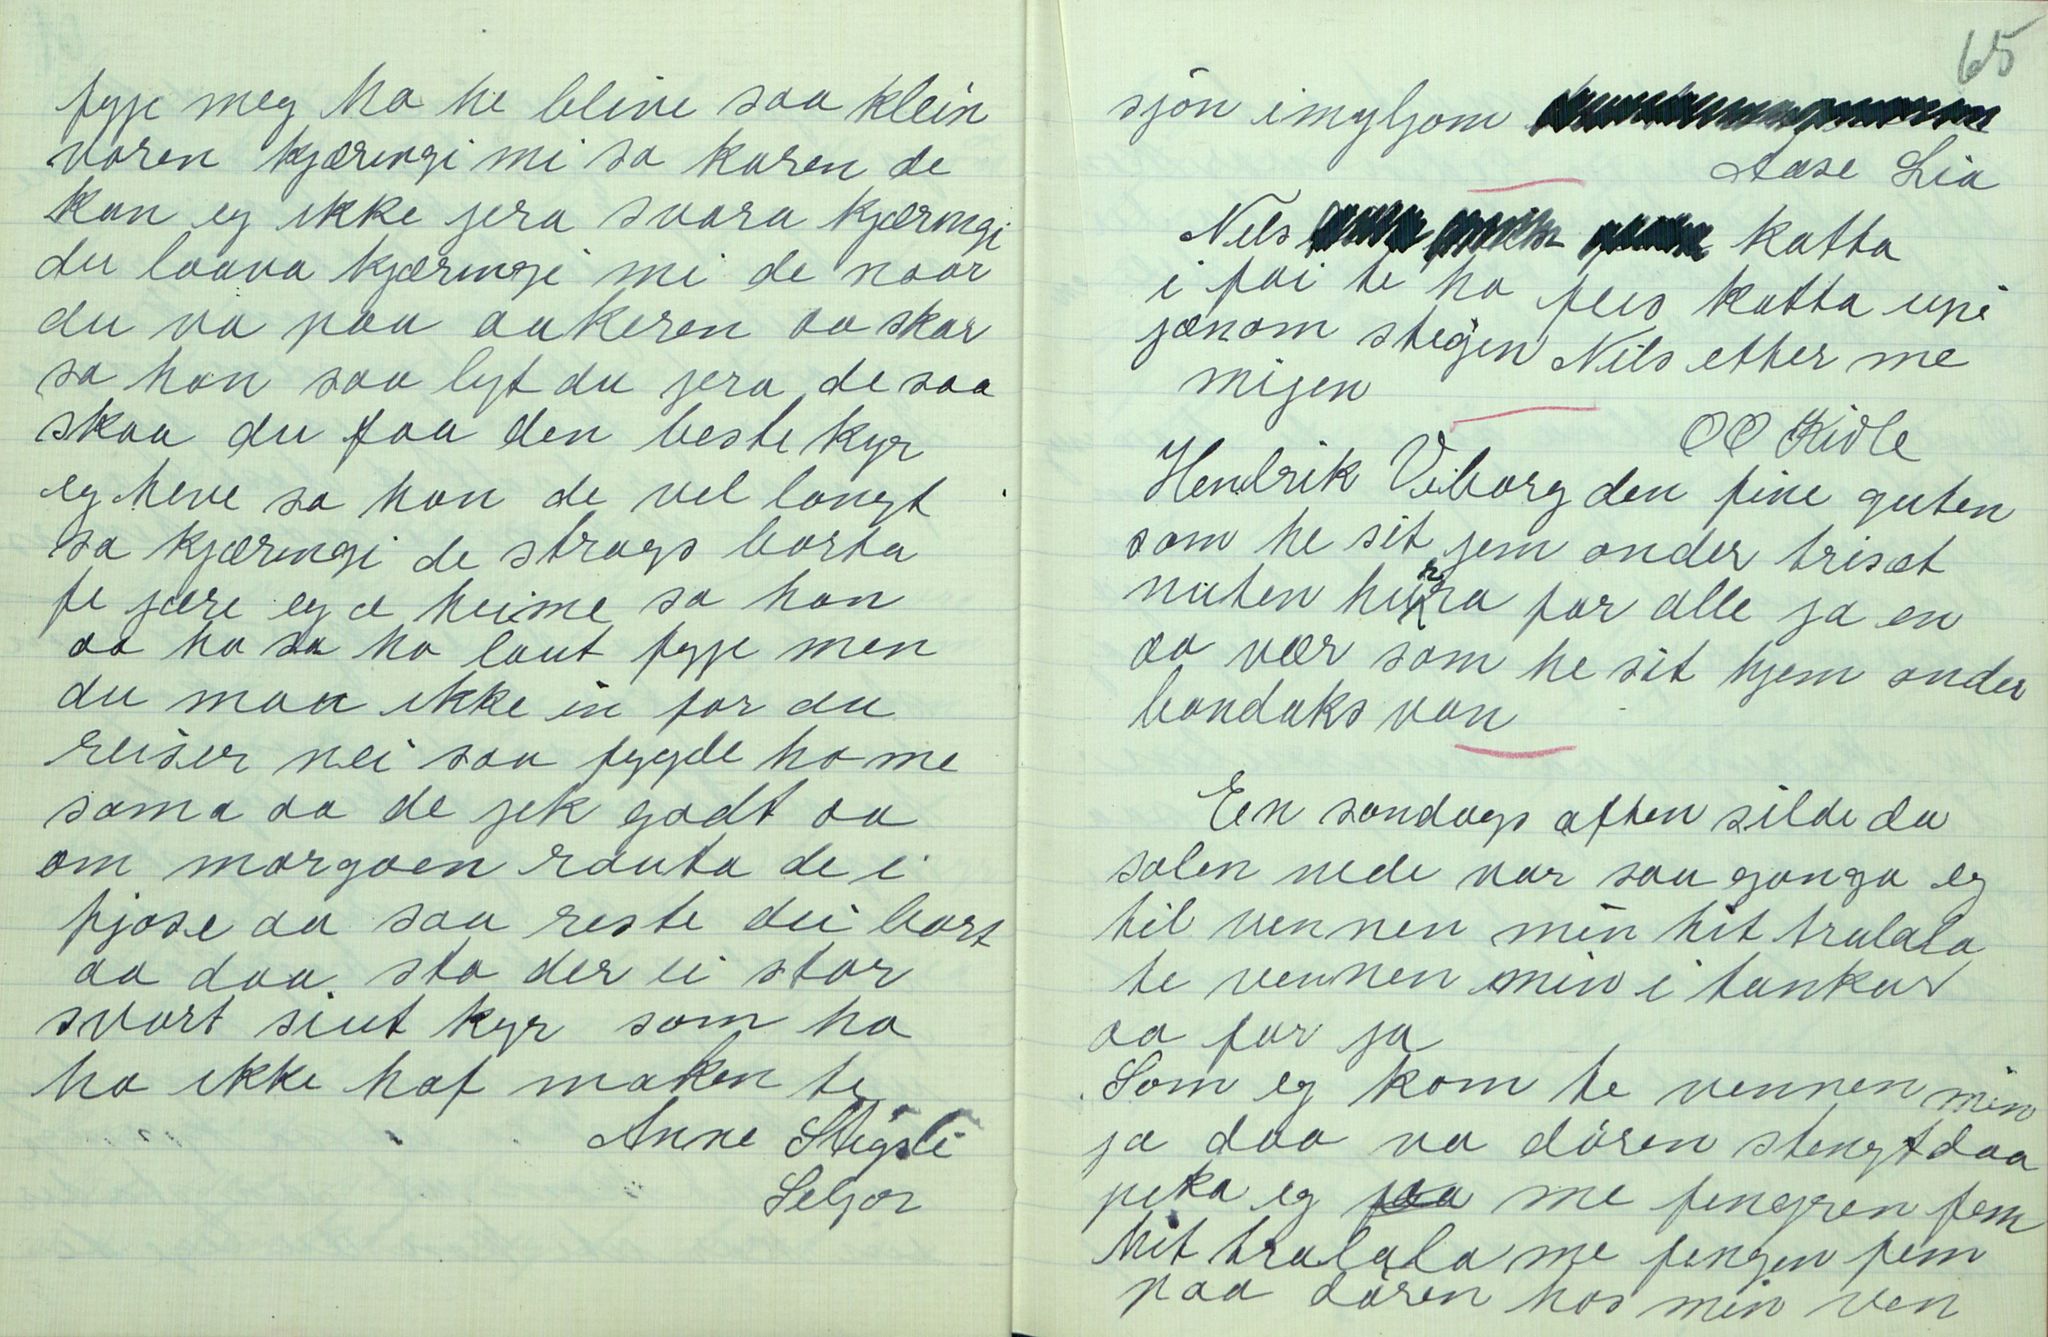 fyje meg ha he blive saa klein
voren kjæringi mi sa karen de
kan eg ikke jera svara kjæringi
du laava kjæringi mi de naar
du va paa aakeren aa skar
sa han saa lyt du jera de saa
skaa du faa den beste kyr
eg heve sa han de vel langt
sa kjæringi de strags borta
te jære eg æ heime sa han
aa ha sa ho laut fyje men
du maa ikke in for du
reiser nei saa fygde ho me
sama aa de jek godt aa
om morgaaen rauta de i
fjøse aa saa reste dei bort
aa daa sto der ei stor
svart siut kyr som ho
ha ikke haf maken te
Anne Stigsli
Seljor
65
sjön imyljom
Aase Lia
Nils katta
i fai te ha feis katta upi
jænom stegen Nils etter me
mijen
OO Kivle
Hendrik Viborg den fine guten
som he sit jem onder triset
nuten hurra for alle ja en
aa vær som he sit hjem onder
bandaks van
Een søndags aften silde da
solen nede var saa gonga eg
til vennen min hit tralala
te vennen min i tankar
aa for ja
Som eg kom te vennen min
ja daa va dören stengt daa
pika eg me fengren fem
hit tralala me fengen fem
paa dören hos min ven